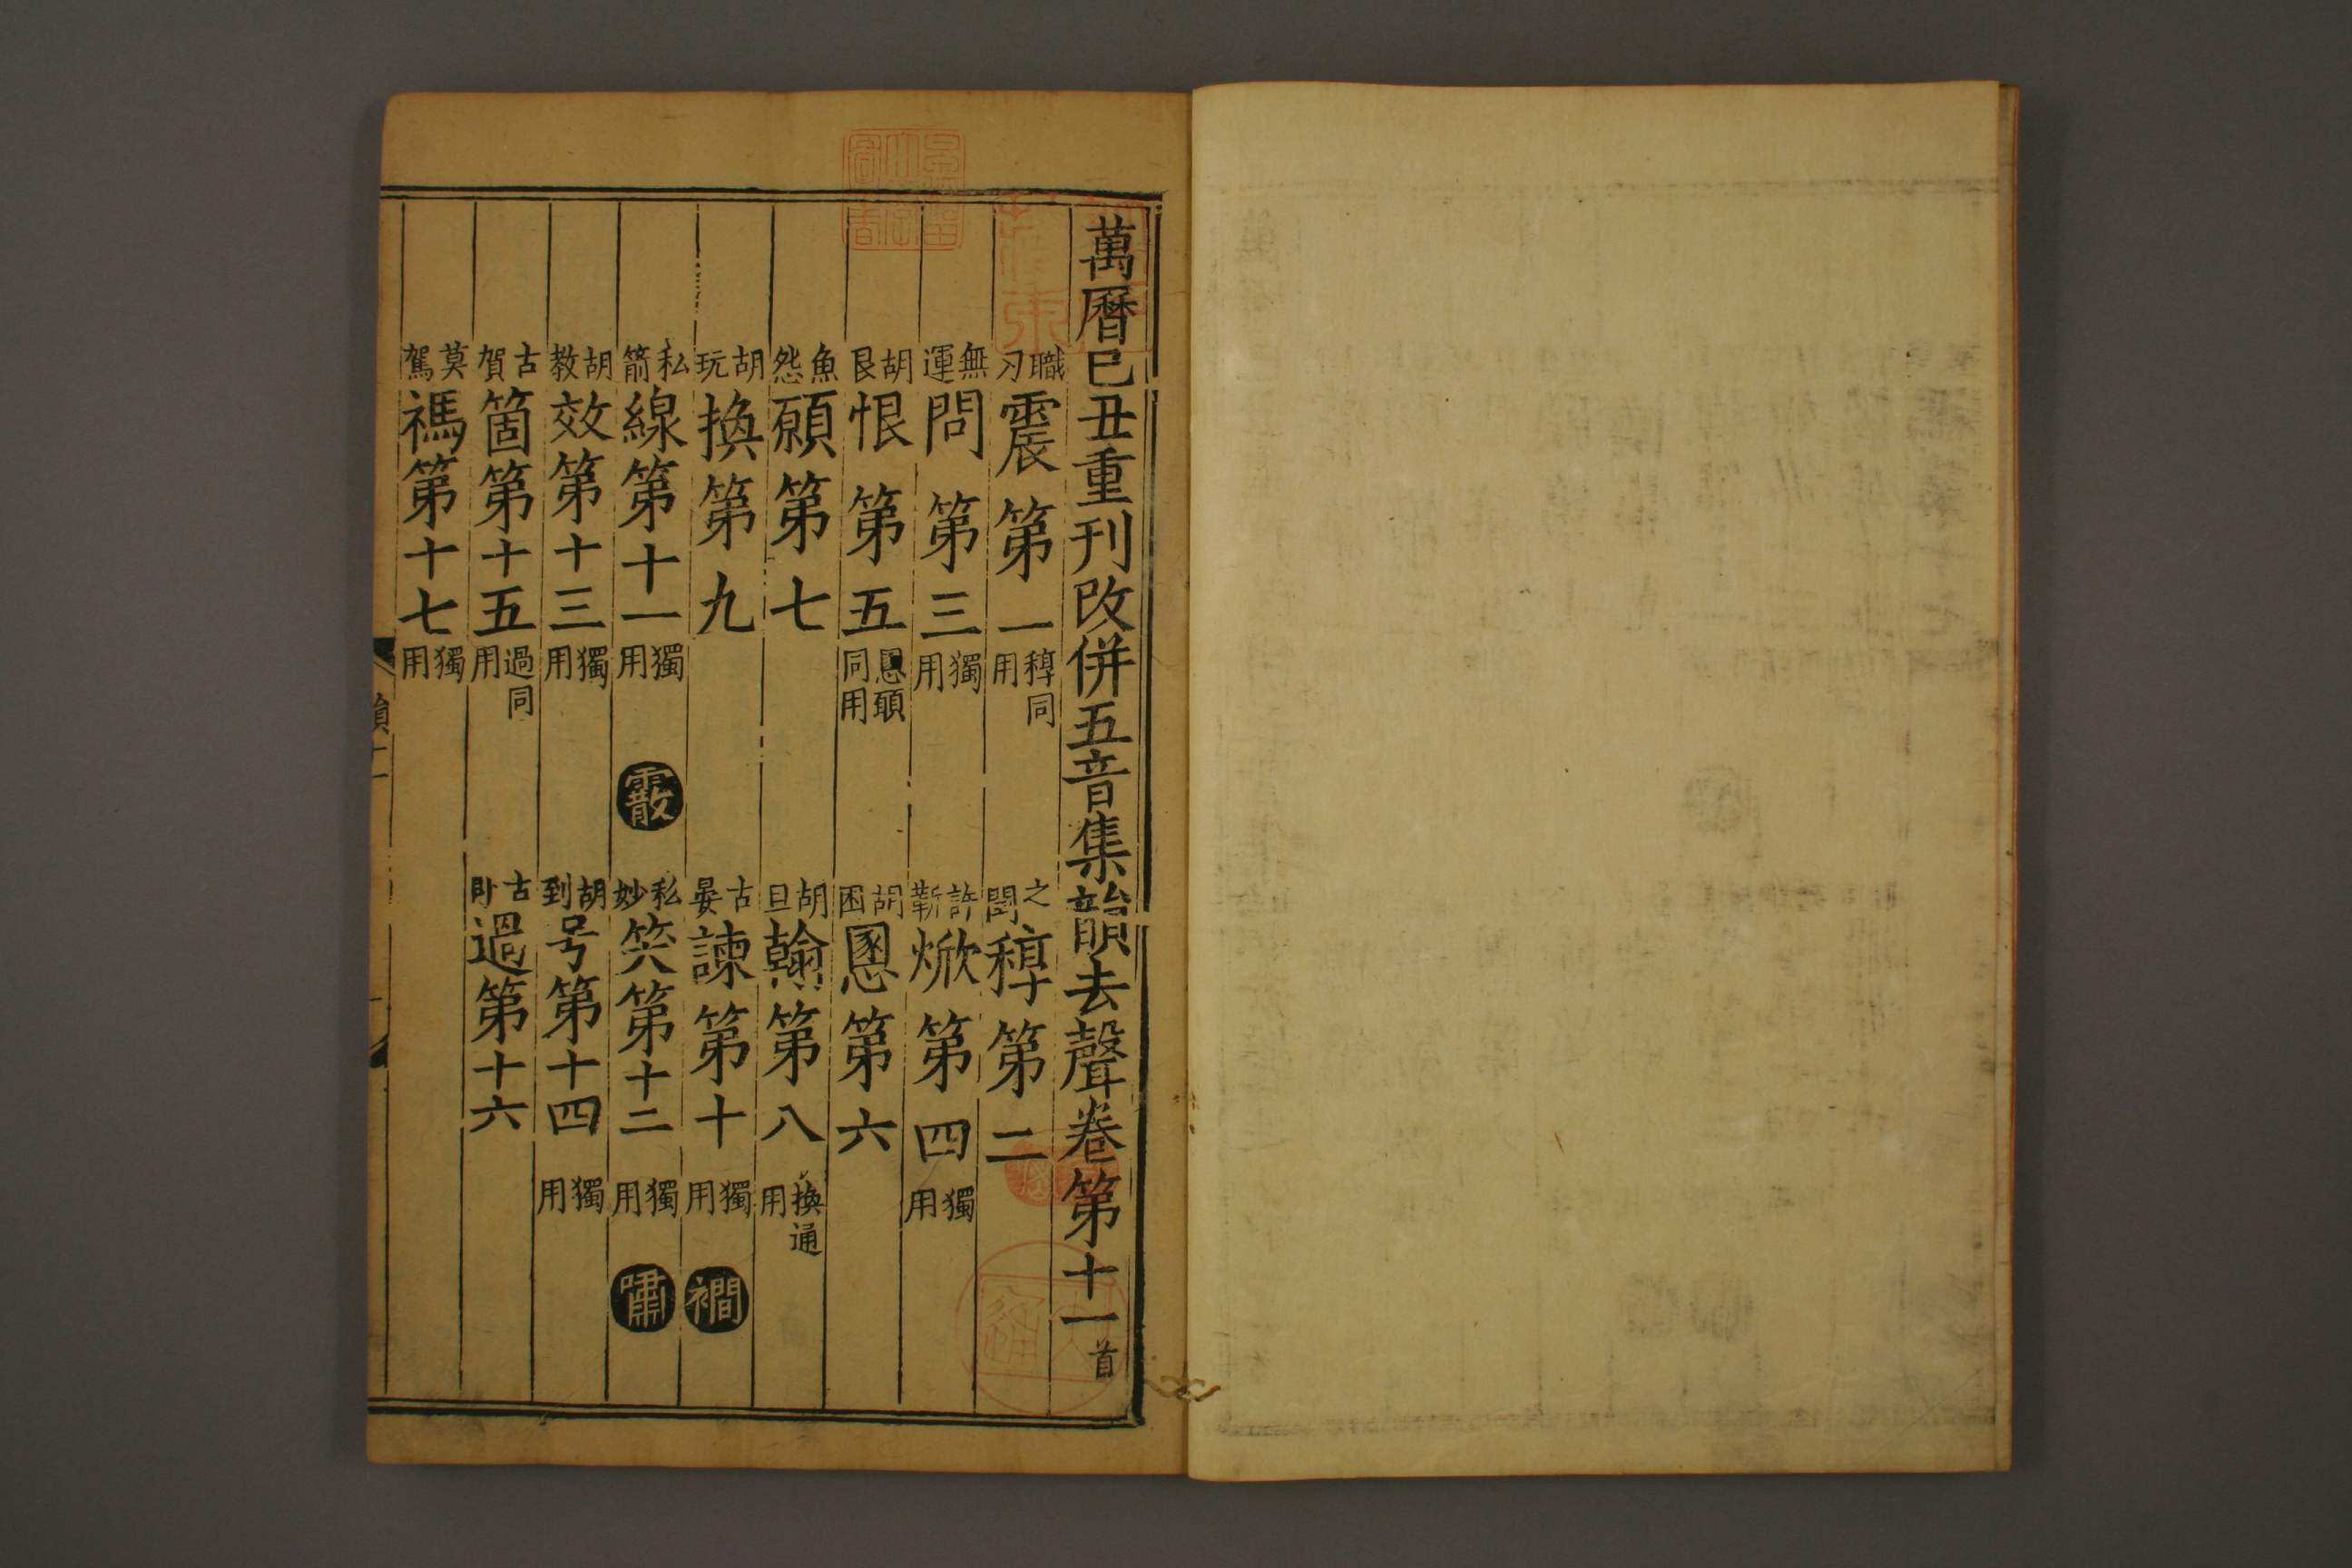 萬曆己丑重刊改併五音集韻去聲卷第十一首
職刃震第一稕同用 之閏稕第二
無運問第三獨用 許靳焮第四獨用
胡艮恨第五慁願同用 胡困慁第六
魚怨願第七 胡旦翰第八換通用
胡玩換第九 古晏諫第十獨用 襉
私箭線第十一獨用 霰 私妙笑第十二獨用 嘯
胡教效第十三獨用 胡到号第十四獨用
古賀箇第十五過同用 古臥過第十六
莫駕禡第十七獨用